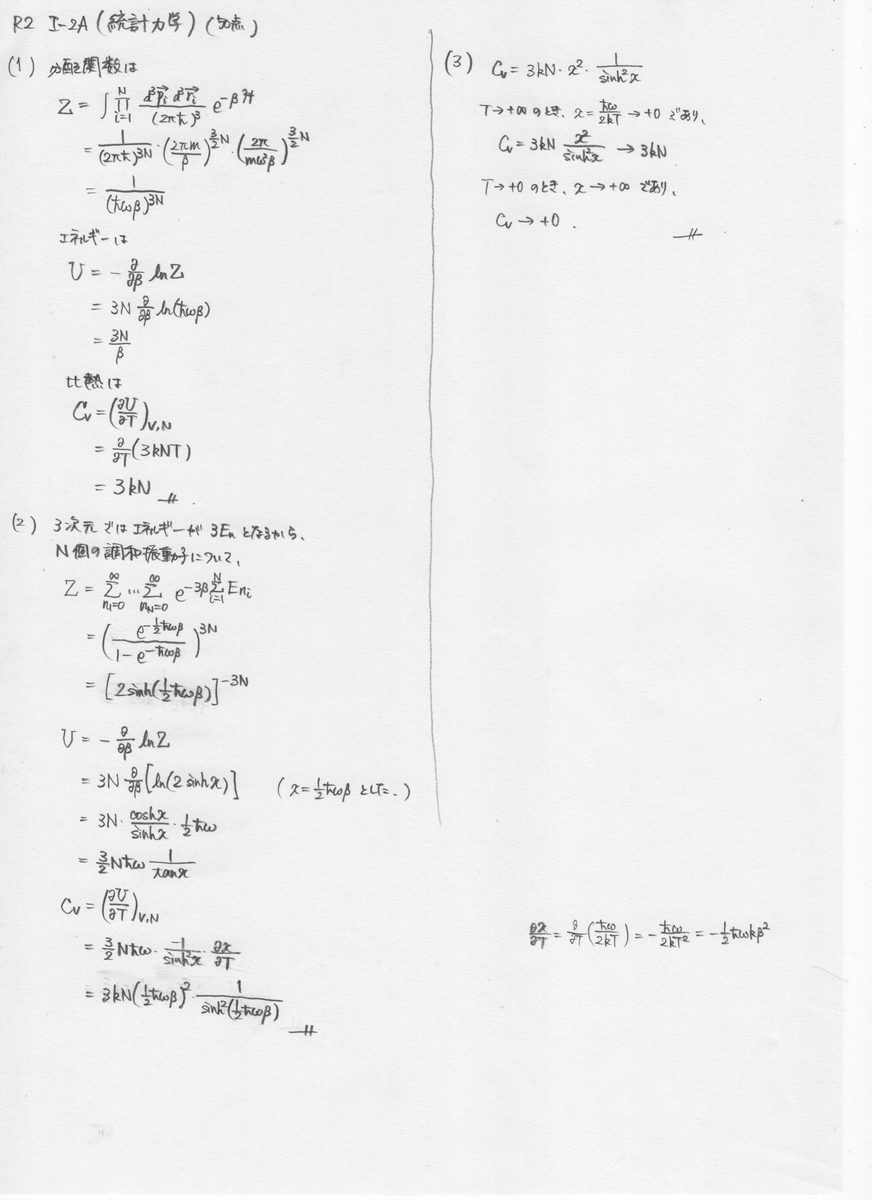 R2 I-2A (統計力学) (50点)
(1) 分配関数は
Z = ∫ ∏_{i=1}^{N} \frac{d³\vec{p}_i d³\vec{r}_i}{(2πħ)³} e^{-βℋ}
= \frac{1}{(2πħ)^{3N}} · (\frac{2πm}{β})^{\frac{3}{2}N} · (\frac{2π}{mω²β})^{\frac{3}{2}N}
= \frac{1}{(ħωβ)^{3N}}
エネルギーは
U = - \frac{∂}{∂β} ln Z
= 3N \frac{∂}{∂β} ln(ħωβ)
= \frac{3N}{β}
比熱は
C_V = (\frac{∂U}{∂T})_{V,N}
= \frac{∂}{∂T}(3kNT)
= 3kN
(2) 3次元ではエネルギーが 3E_n となるから、
N個の調和振動子について、
Z = ∑_{n_1=0}^{∞} … ∑_{n_N=0}^{∞} e^{-3β∑_{i=1}^{N} E_{n_i}}
= (\frac{e^{-\frac{1}{2}ħωβ}}{1 - e^{-ħωβ}})^{3N}
= [2 sinh(\frac{1}{2}ħωβ)]^{-3N}
U = - \frac{∂}{∂β} ln Z
= 3N \frac{∂}{∂β} [ln(2 sinh x)] (x = \frac{1}{2}ħωβ とした.)
= 3N · \frac{cosh x}{sinh x} · \frac{1}{2}ħω
= \frac{3}{2}Nħω \frac{1}{tan x}
C_V = (\frac{∂U}{∂T})_{V,N}
= \frac{3}{2}Nħω · \frac{-1}{sinh²x} · \frac{∂x}{∂T}
= 3kN(\frac{1}{2}ħωβ)² · \frac{1}{sinh²(\frac{1}{2}ħωβ)}
(3) C_V = 3kN · x² · \frac{1}{sinh²x}
T→+∞ のとき、x = \frac{ħω}{2kT} → +0 であり、
C_V = 3kN \frac{x²}{sinh²x} → 3kN
T→+0 のとき、x → +∞ であり、
C_V → +0 .
\frac{∂x}{∂T} = \frac{∂}{∂T}(\frac{ħω}{2kT}) = - \frac{ħω}{2kT²} = - \frac{1}{2}ħωkβ²